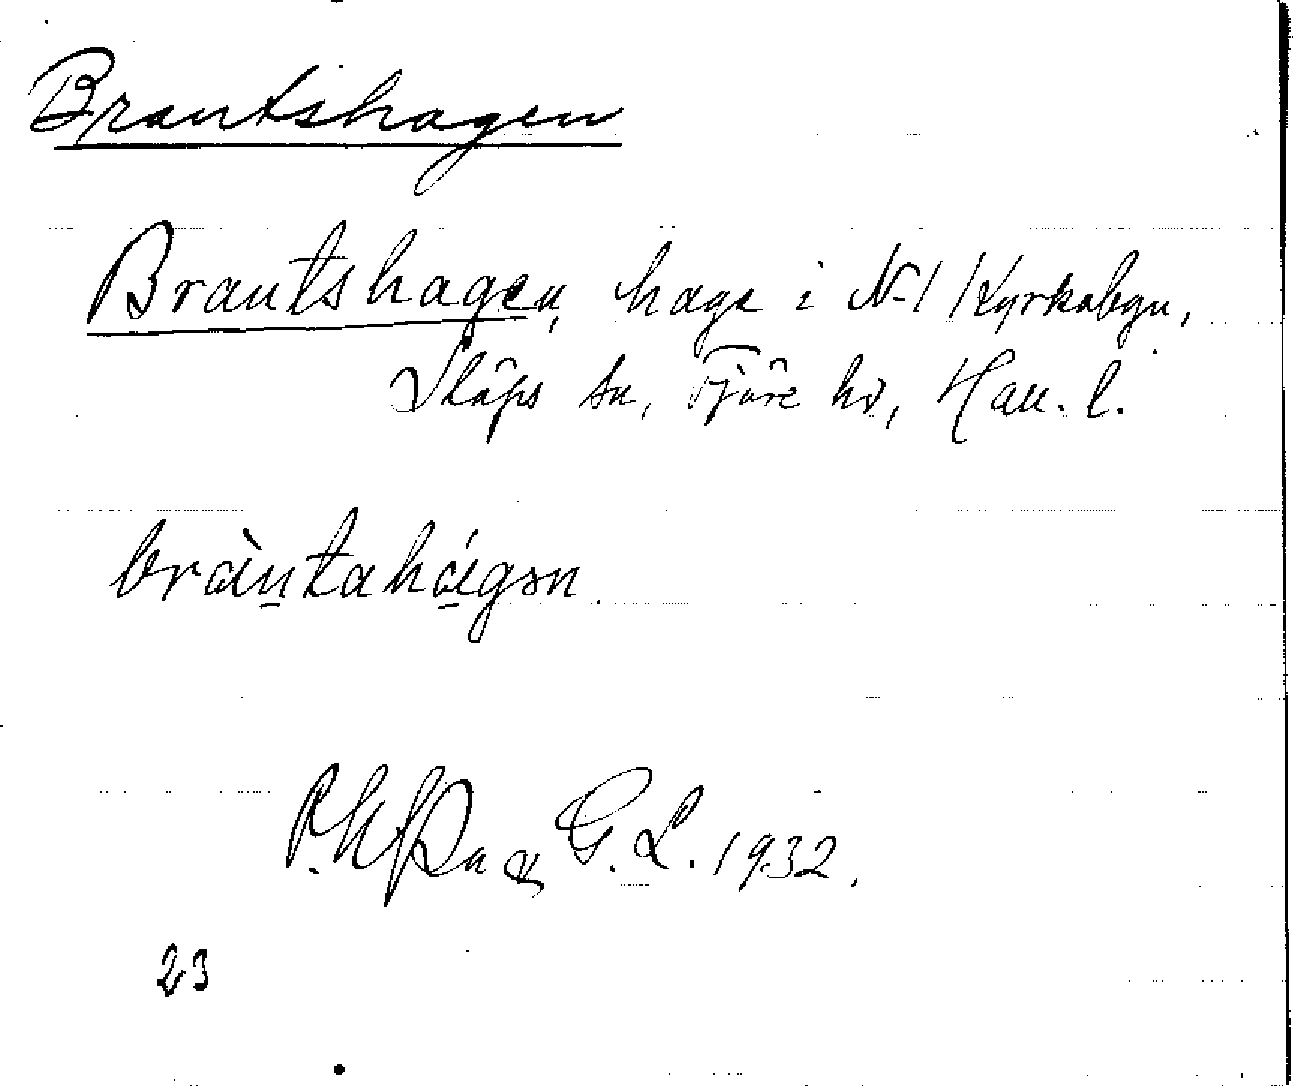 Brantshagen
Brantshagen, hage i N-1 Kyrkobyn,
Släps sn, Fjäre hd, Hall. l.
bràntahágən.
G. L. 1932.
23